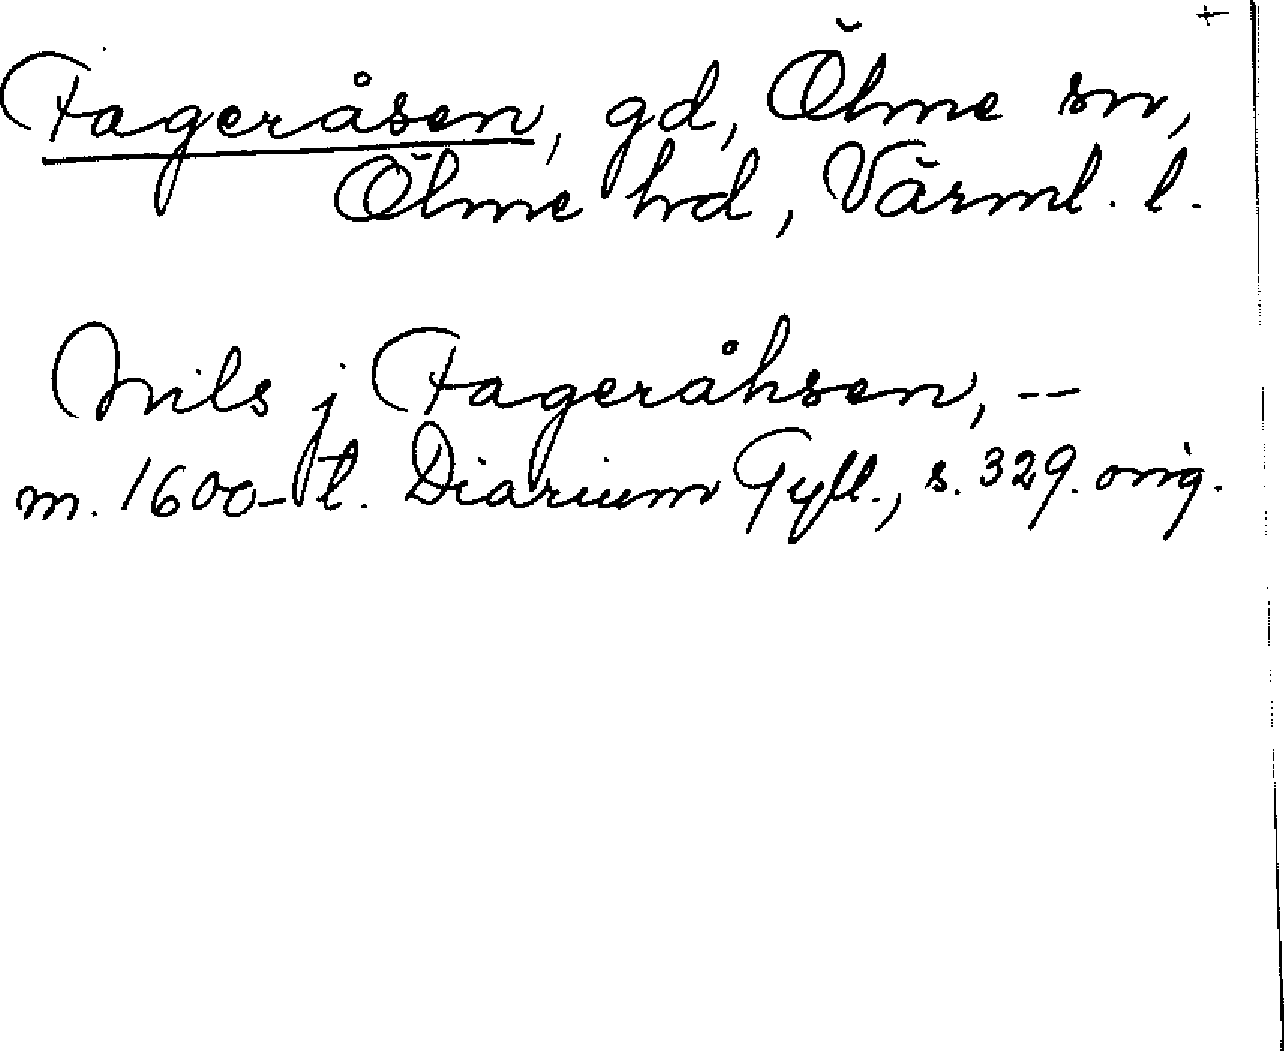 +
Fageråsen, gd, Ölme sn,
Ölme hd, Värml. l.
Nils j Fageråhsen, --
m. 1600-t. Diarium Gyll., s. 329. orig.